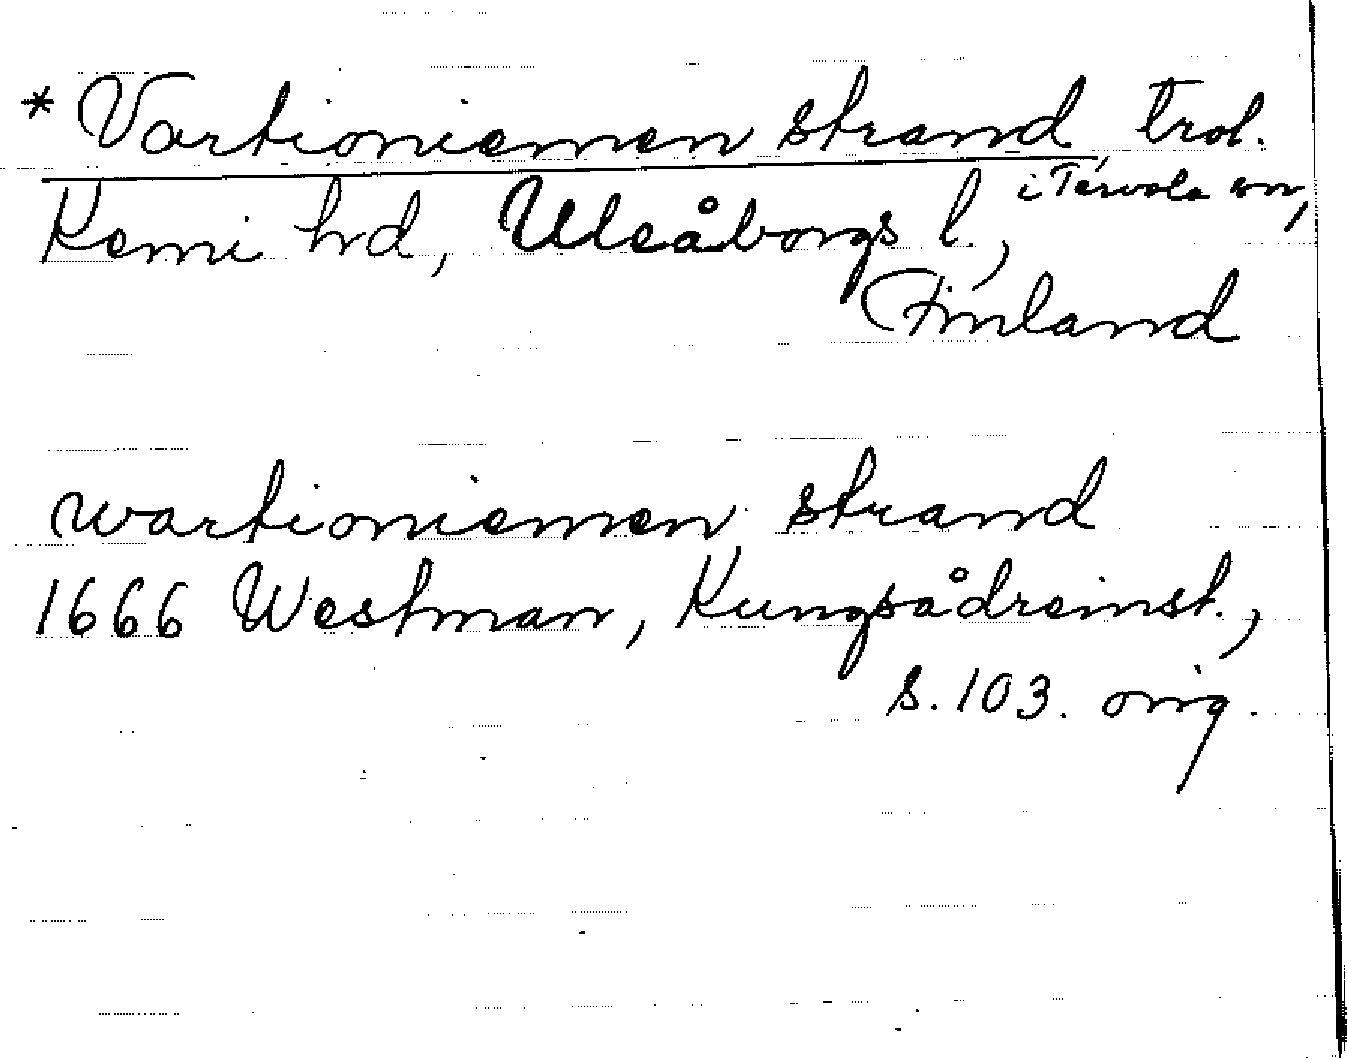 * Vartioniemen strand, trol.
i Tervola sn,
Kemi hd, Uleåborgs l.,
Finland
wartioniemen strand
1666 Westman, Kungsådreinst.,
s. 103. orig.